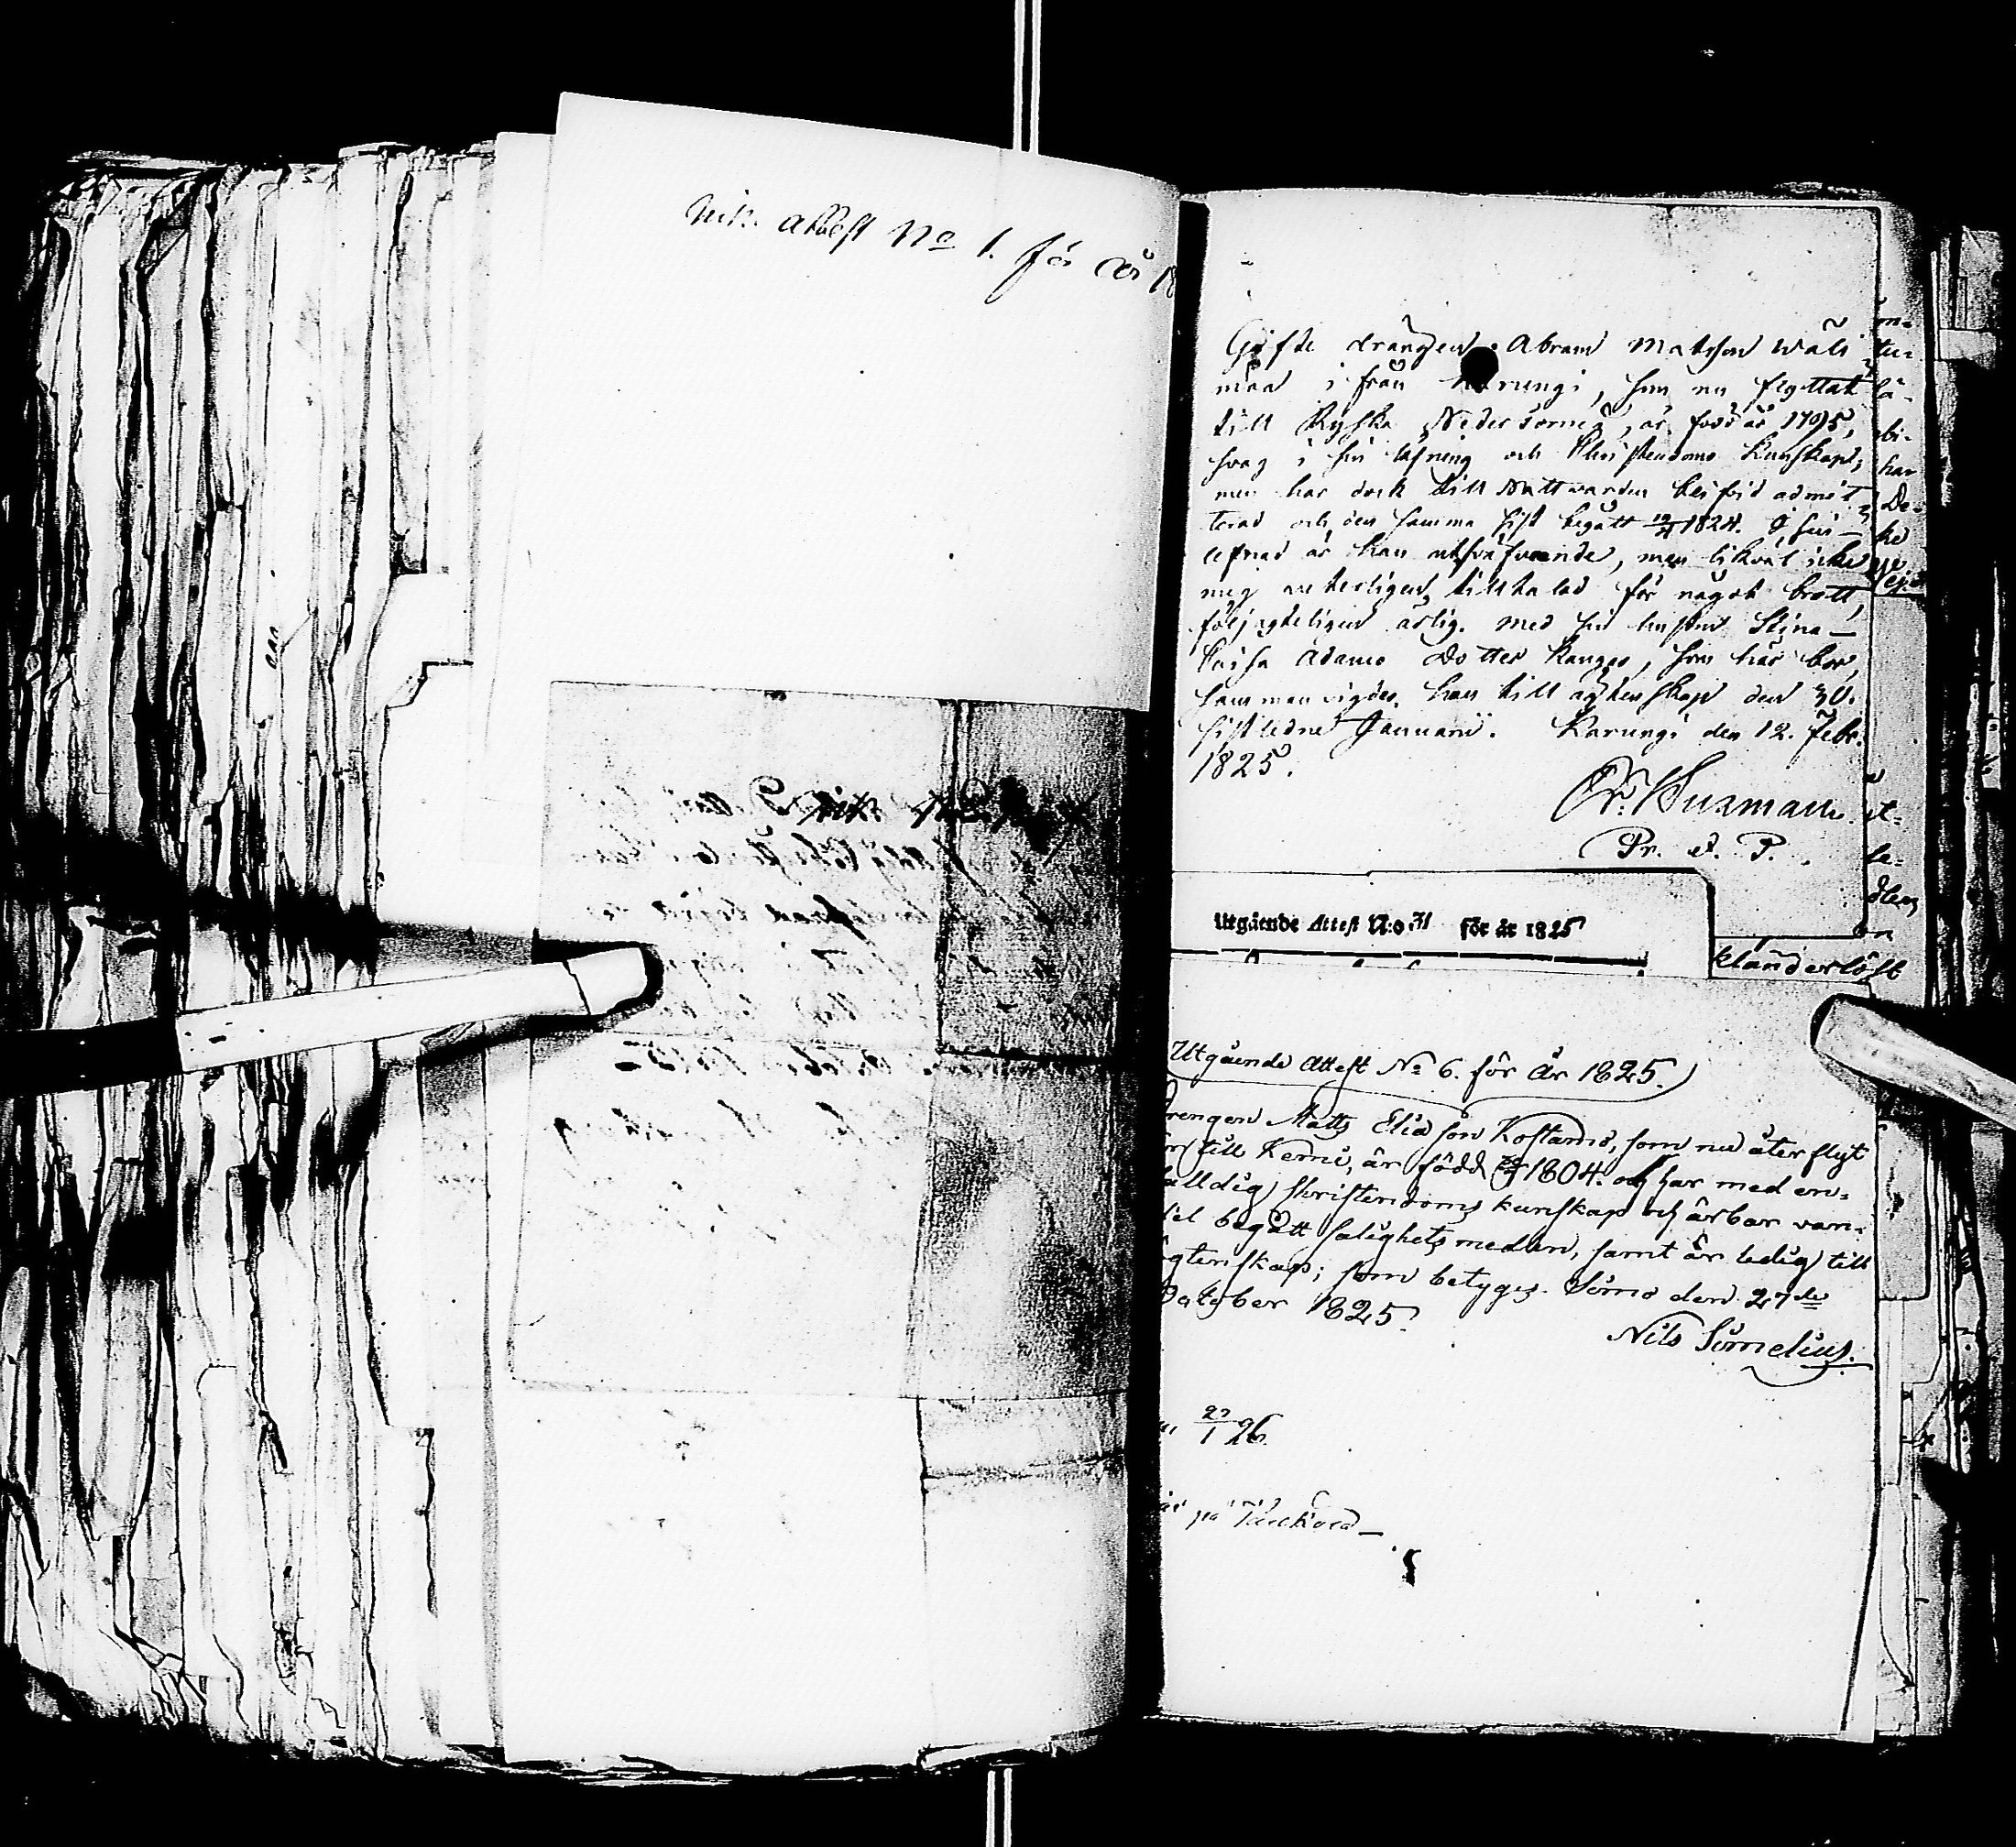 Ink. attest No 1. för År 18
Gifte drängen Abram Matsson Wäli
maa ifrån Karungi, som nu flyttat
till Ryska NederTorneå, är född år 1795,
svag i sin läsning och Christendoms Kunskap;
men har dock till Nattvarden blifvid admit
terad och den samma sist begått 1824. I sin
lefnad är han utsväfvande, men likväl icke
mig veterligen tilltalad för något brott,
följagteligen ärlig. med sin hustru Stina
Caisa Adams Dotter Kangas, som här bor,
sammanvigdes han till ägtenskap den 30.
sistledne Januari. Karungi den 12. Febr.
1825.
Pr. V. P.
Utgående Attest N:o 31 för år 1825
klanderlöst
Utgående Attest No 6. för År 1825.
Drengen Matts Eliasson Kostamo, som nu återflyt
till Kemi, är född 1804. och har med en-
falldig Christendoms kunskap och ärbar van-
del begått salighets medlen, samt är ledig till
ägtenskap; som betygas. Simo den 27de
October 1825.
Nils Simelius.
27/1 26.
på